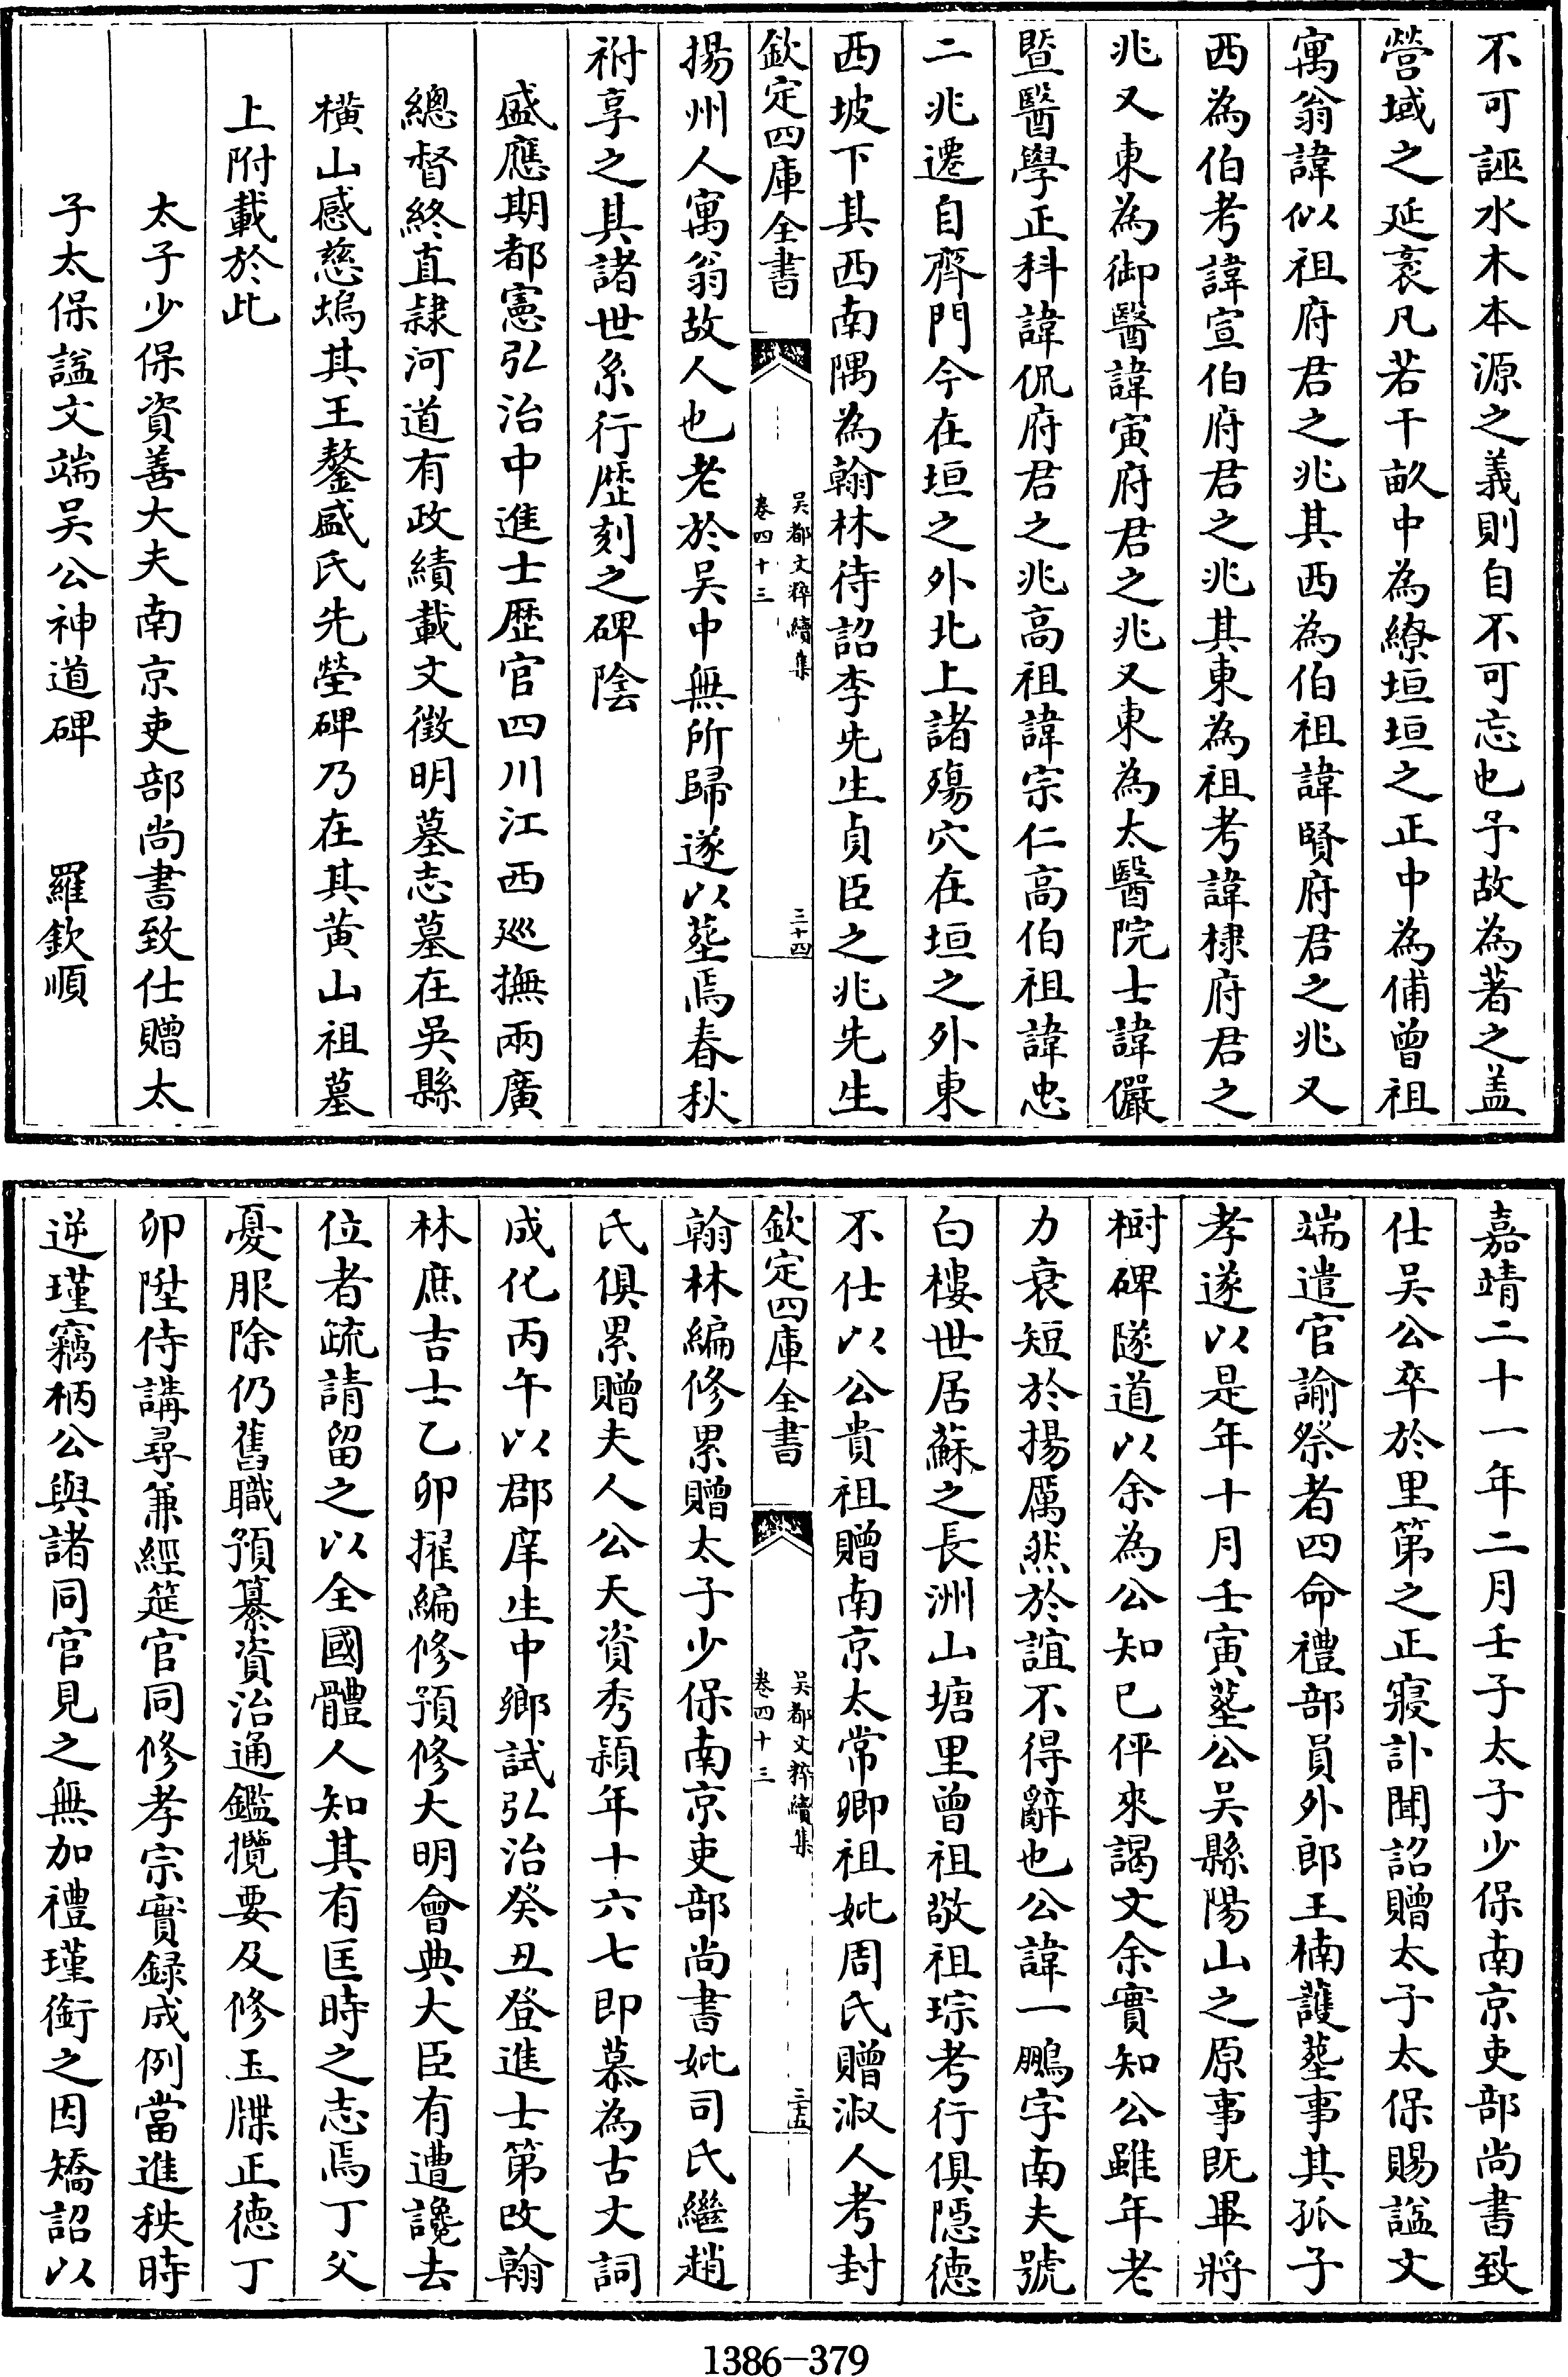 不可誣水木本源之義則自不可忘也予故為著之盖
營域之延袤凡若干畝中為繚垣垣之正中為俌曾祖
寓翁諱似祖府君之兆其西為伯祖諱賢府君之兆又
西為伯考諱宣伯府君之兆其東為祖考諱棣府君之
兆又東為御醫諱寅府君之兆又東為太醫院士諱儼
暨醫學正科諱侃府君之兆高祖諱宗仁高伯祖諱忠
二兆遷自齊門今在垣之外北上諸殤穴在垣之外東
西坡下其西南隅為翰林待詔李先生貞臣之兆先生
欽定四庫全書
吳都文粹續集
卷四十三
三十四
揚州人寓翁故人也老於吳中無所歸遂以塟焉春秋
祔享之其諸世系行歴刻之碑陰
盛應期都憲弘治中進士歴官四川江西廵撫兩廣
總督終直隷河道有政績載文徵明墓志墓在吳縣
横山感慈塢其王鏊盛氏先塋碑乃在其黄山祖墓
上附載於此
太子少保資善大夫南京吏部尚書致仕贈太
子太保諡文端吴公神道碑 羅欽順
嘉靖二十一年二月壬子太子少保南京吏部尚書致
仕吴公卒於里第之正寢訃聞詔贈太子太保賜諡文
端遣官諭祭者四命禮部員外郎王楠護塟事其孤子
孝遂以是年十月壬寅塟公吴縣陽山之原事既畢將
樹碑隧道以余為公知已伻來謁文余實知公雖年老
力衰短於揚厲然於誼不得辭也公諱一鵬字南夫號
白樓世居蘇之長洲山塘里曾祖敬祖琮考行俱隠徳
不仕以公貴祖贈南京太常卿祖妣周氏贈淑人考封
欽定四庫全書
吴都文粹續集
卷四十三
三十五
翰林編修累贈太子少保南京吏部尚書妣司氏繼趙
氏俱累贈夫人公天資秀穎年十六七即慕為古文詞
成化丙午以郡庠生中鄉試弘治癸丑登進士第改翰
林庶吉士乙卯擢編修預修大明會典大臣有遭讒去
位者疏請留之以全國體人知其有匡時之志焉丁父
憂服除仍舊職預纂資治通鑑攬要及修玉牒正徳丁
卯陞侍講尋兼經筵官同修孝宗實録成例當進秩時
逆瑾竊柄公與諸同官見之無加禮瑾銜之因矯詔以
1386-379